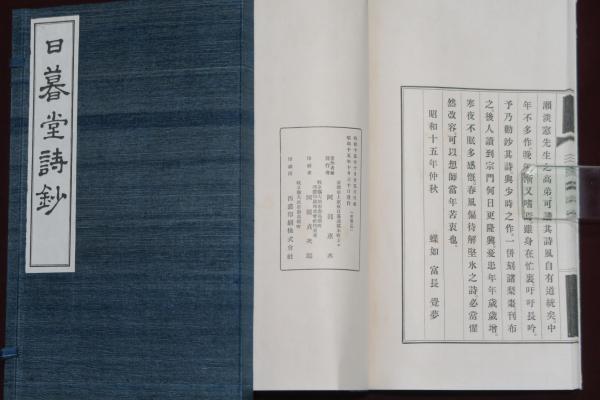 日暮堂詩鈔
瀬淡窓先生之高弟可謂其詩風自有道統矣中
年不多作晚年漸又嗜焉雖身在忙裏吁吁長吟
予乃勸鈔其詩與少時之作一併刻諸梨棗刊布
之後人讀到宗門何日更隆興憂患年年歲歲增
寒夜不眠多感慨春風偏待解堅氷之詩必當懼
然改容可以想師當年苦衷也
昭和十五年仲秋 蝶如 富長覺夢
昭和十五年十月
昭和十五年十月三十日發行
印刷者
印刷所 西濃印刷株式會社